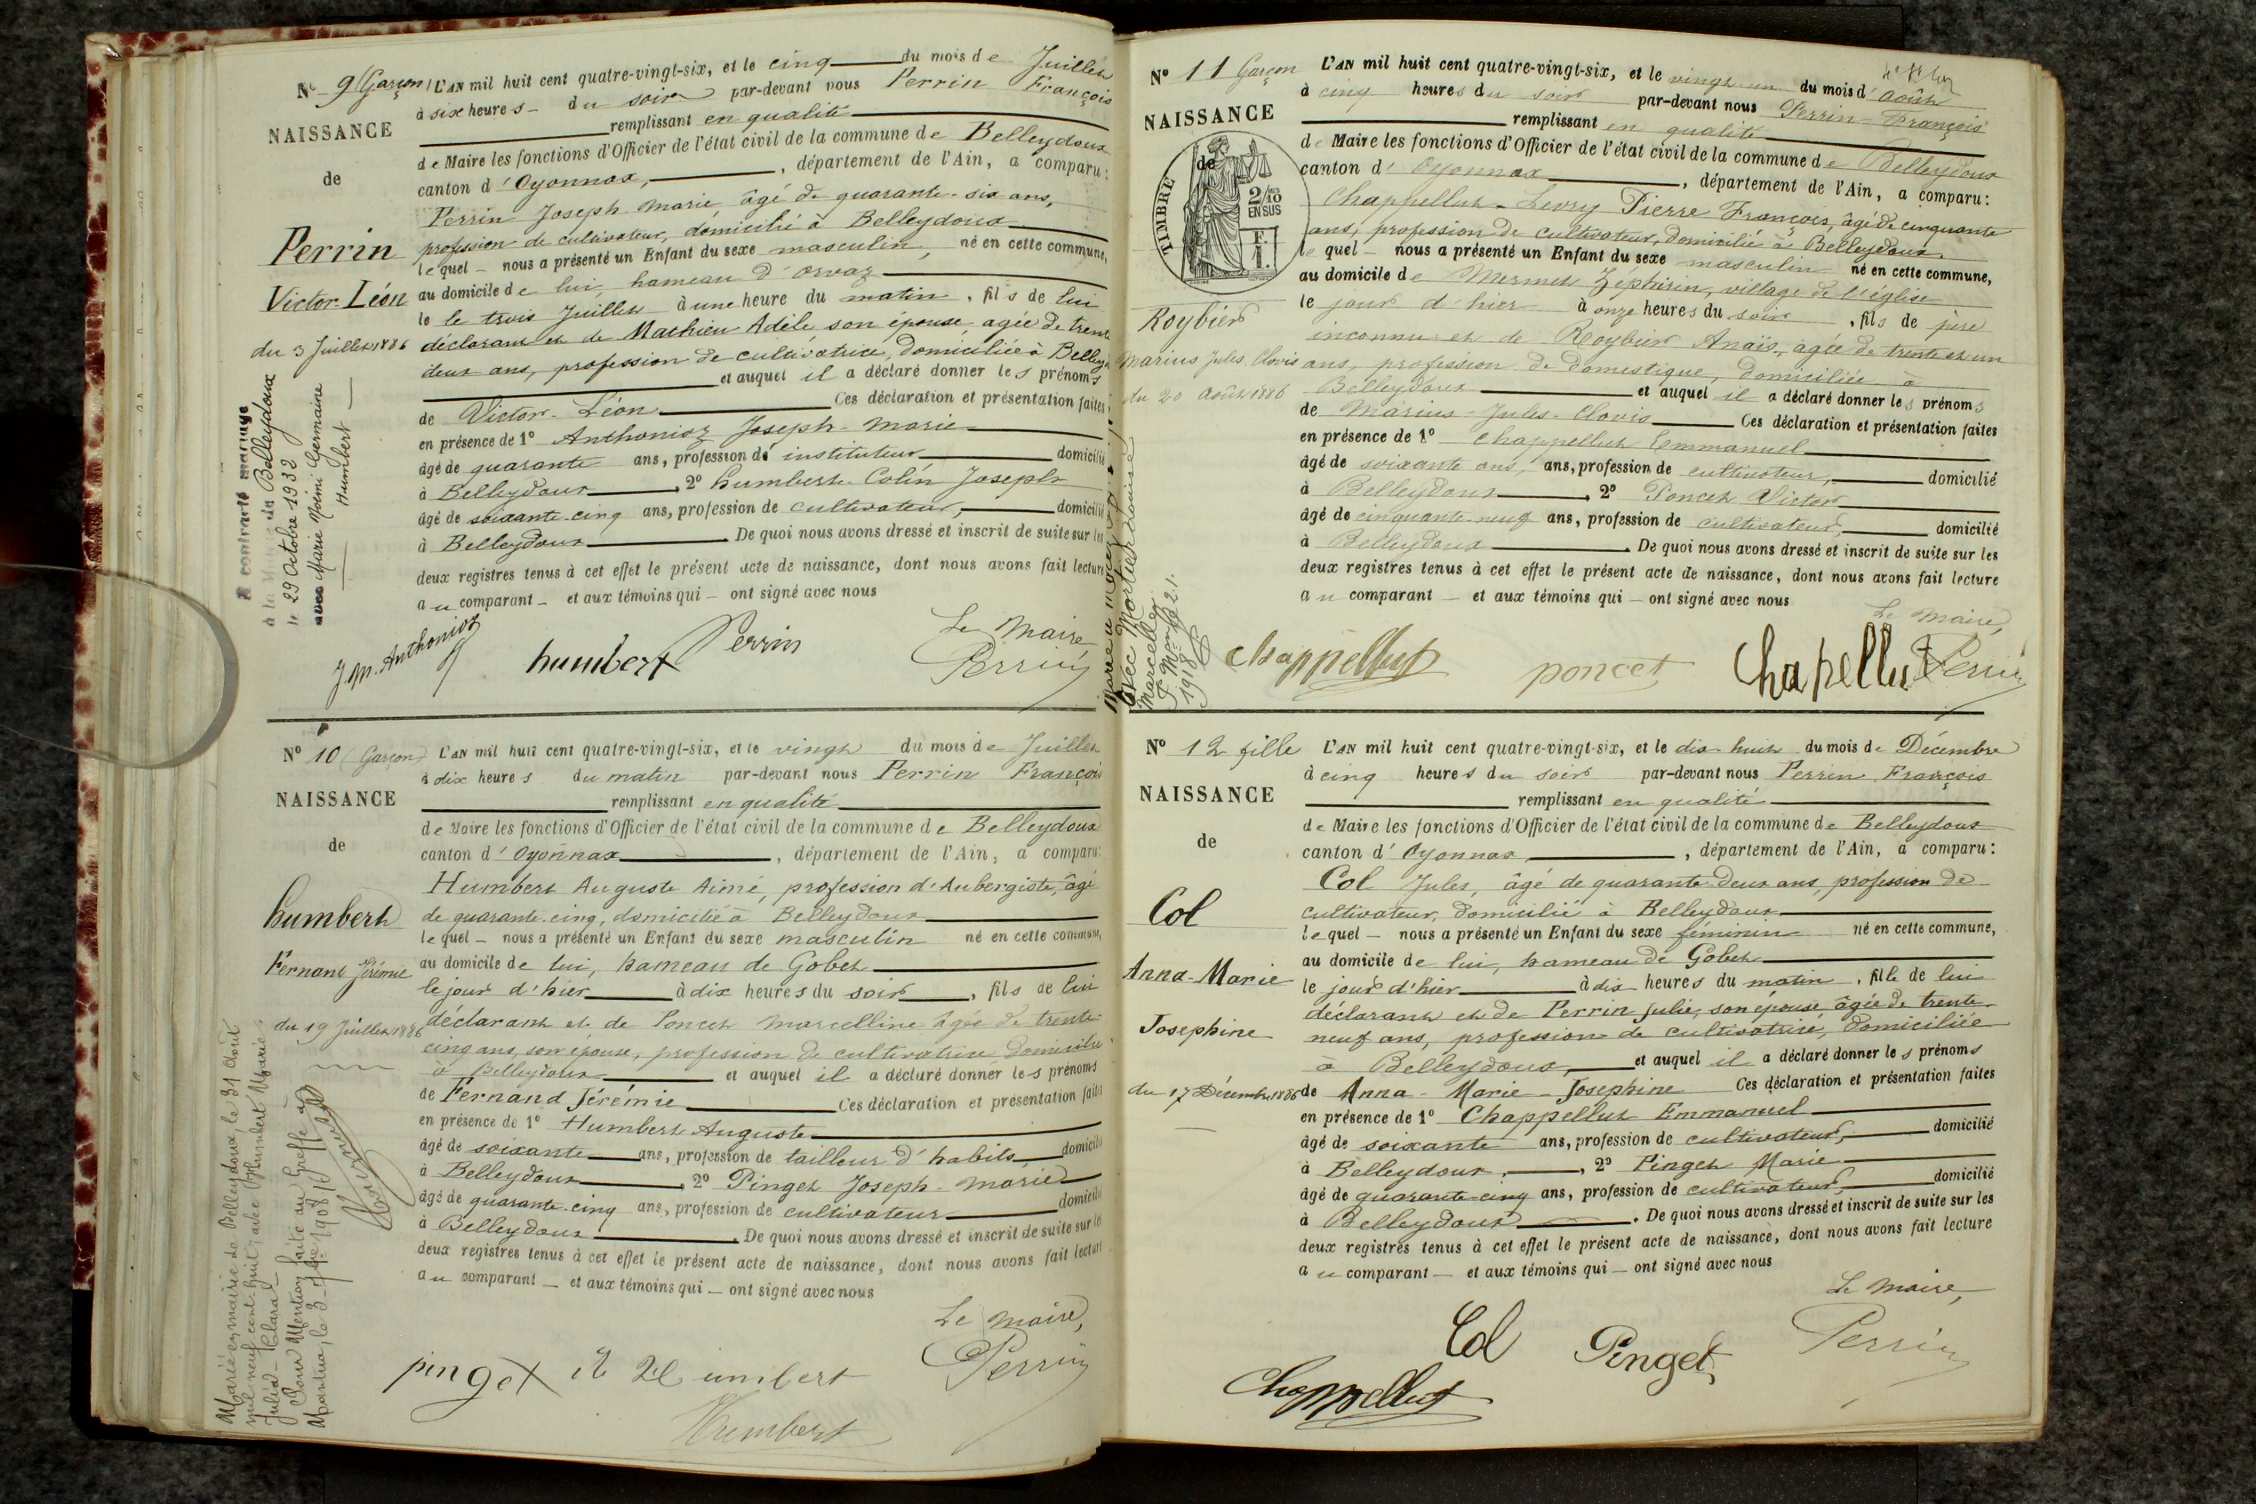 N° 9 (Garçon) L'AN mil huit cent quatre-vingt-six, et le cinq du mois de Juillet
à six heures du soir par-devant nous Perrin François
NAISSANCE
remplissant en qualité
de Maire les fonctions d'Officier de l'état civil de la commune de Belleydoux
de
canton d'Oyonnax, département de l'Ain, a comparu:
Perrin Joseph Marie âgé de quarante-six ans,
profession de cultivateur, domicilié à Belleydoux
Perrin
lequel nous a présenté un Enfant du sexe masculin, né en cette commune,
Victor Léon
au domicile de lui, hameau d'Orvaz
le le trois Juillet à une heure du matin, fils de lui
du 3 Juillet 1886
déclarant et de Mathieu Adèle son épouse, agée de trente
deux ans, profession de cultivatrice, domiciliée à Belleyd
et auquel il a déclaré donner les prénoms
de Victor-Léon Ces déclaration et présentation faites
en présence de 1° Anthonioz Joseph-Marie
âgé de quarante ans, profession de instituteur domicilié
à Belleydoux, 2° humbert Colin Joseph
âgé de soixante-cinq ans, profession de cultivateur, domicilié
à Belleydoux. De quoi nous avons dressé et inscrit de suite sur les
deux registres tenus à cet effet le présent acte de naissance, dont nous avons fait lecture
au comparant et aux témoins qui ont signé avec nous
A contracté mariage
à la Mairie de Belleydoux
le 29 Octobre 1932
avec Marie Noémi Germaine
Humbert
Le Maire
J. M. Anthonioz
humbert
Perrin
Perrin
N° 10 (Garçon) L'AN mil huit cent quatre-vingt-six, et le vingt du mois de Juillet
à dix heures du matin par-devant nous Perrin François
NAISSANCE
remplissant en qualité
de Maire les fonctions d'Officier de l'état civil de la commune de Belleydoux
de
canton d'Oyonnax, département de l'Ain, a comparu:
Humbert Auguste Aimé, profession d'Aubergiste, âgé
humbert
de quarante-cinq, domicilié à Belleydoux
lequel nous a présenté un Enfant du sexe masculin né en cette commune,
Fernand Jérémie
au domicile de lui, hameau de Gobet
le jour d'hier à dix heures du soir, fils de lui
du 19 Juillet 1886
déclarant et de Poncet Marcelline agée de trente
cinq ans, son épouse, profession de cultivatrice domiciliée
à Belleydoux et auquel il a déclaré donner les prénoms
de Fernand Jérémie Ces déclaration et présentation faites
en présence de 1° Humbert Auguste
âgé de soixante ans, profession de tailleur d'habits, domicilié
à Belleydoux, 2° Pinget Joseph-Marie
âgé de quarante-cinq ans, profession de cultivateur domicilié
à Belleydoux. De quoi nous avons dressé et inscrit de suite sur les
deux registres tenus à cet effet le présent acte de naissance, dont nous avons fait lecture
au comparant et aux témoins qui ont signé avec nous
Marié en mairie de Belleydoux, le 31 Août
mil neuf cent huit avec Humbert Marie
Julia-Clara
Pour Mention faite au Greffe à
Nantua, le 3 7bre 1908
Le Maire,
pinget
Humbert
Perrin
Humbert
N° 11 Garçon L'AN mil huit cent quatre-vingt-six, et le vingt-un du mois d'août
à cinq heures du soir par-devant nous Perrin François
NAISSANCE
remplissant en qualité
de Maire les fonctions d'Officier de l'état civil de la commune de Belleydoux
de
canton d'Oyonnax, département de l'Ain, a comparu:
TIMBRE
2/10
EN SUS
Chappellut-Levry Pierre François, âgé de cinquante
ans, profession de cultivateur, domicilié à Belleydoux
lequel nous a présenté un Enfant du sexe masculin né en cette commune,
au domicile de Mermet Zéphirin, village de l'église
le jour d'hier à onze heures du soir, fils de père
Roybier
inconnu et de Roybier Anaïs, agée de trente et un
Marius Jules Clovis
ans, profession de domestique, domiciliée à
du 20 Août 1886
Belleydoux et auquel il a déclaré donner les prénoms
de Marius-Jules-Clovis Ces déclaration et présentation faites
en présence de 1° Chappellut Emmanuel
âgé de soixante ans, ans, profession de cultivateur, domicilié
à Belleydoux, 2° Poncet Victor
âgé de cinquante-neuf ans, profession de cultivateur, domicilié
à Belleydoux. De quoi nous avons dressé et inscrit de suite sur les
deux registres tenus à cet effet le présent acte de naissance, dont nous avons fait lecture
au comparant et aux témoins qui ont signé avec nous
avec
Marcelle
1918
Le Maire,
Chappellut
poncet
Chapellut
Perrin
N° 12 fille L'AN mil huit cent quatre-vingt-six, et le dix-huit du mois de Décembre
à cinq heures du soir par-devant nous Perrin François
NAISSANCE
remplissant en qualité
de Maire les fonctions d'Officier de l'état civil de la commune de Belleydoux
de
canton d'Oyonnax, département de l'Ain, a comparu:
Col Jules, âgé de quarante-deux ans, profession de
Col
cultivateur, domicilié à Belleydoux
lequel nous a présenté un Enfant du sexe féminin né en cette commune,
Anna-Marie
au domicile de lui, hameau de Gobet
le jour d'hier à dix heures du matin, fille de lui
déclarant et de Perrin Julie, son épouse âgée de trente
Josephine
neuf ans, profession de cultivatrice, domiciliée
à Belleydoux, et auquel il a déclaré donner les prénoms
du 17 Décembre 1886
de Anna-Marie-Josephine Ces déclaration et présentation faites
en présence de 1° Chappellut Emmanuel
âgé de soixante ans, profession de cultivateur, domicilié
à Belleydoux, 2° Pinget Marie
âgé de quarante-cinq ans, profession de cultivateur, domicilié
à Belleydoux. De quoi nous avons dressé et inscrit de suite sur les
deux registres tenus à cet effet le présent acte de naissance, dont nous avons fait lecture
au comparant et aux témoins qui ont signé avec nous
Le Maire,
Col
Pinget
Perrin
Chappellut